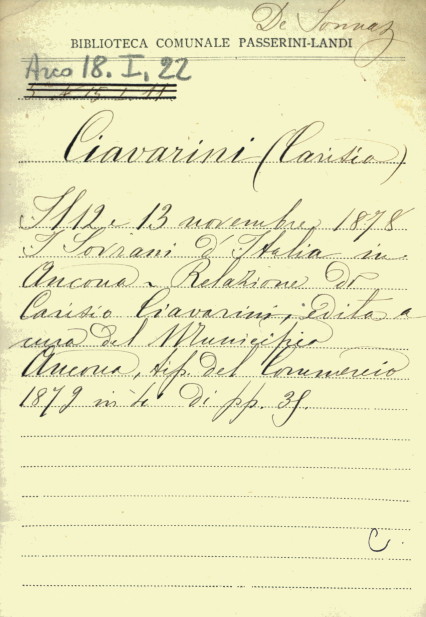 De Sonnaz
BIBLIOTECA COMUNALE PASSERINI-LANDI
Arco 18. I, 22
Ciavarini (Carisio)
Il 12 e 13 novembre 1878
I Sovrani d'Italia in
Ancona - Relazione di
Carisio Ciavarini, edita a
cura del Municipio
Ancona, tip. del Commercio
1879 in 4° di pp. 35.
C.